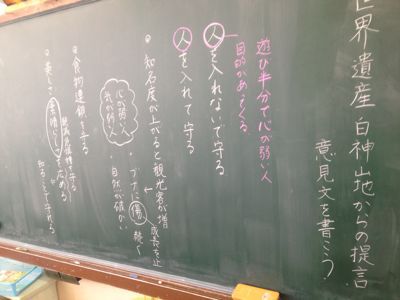 世界遺産 白神山地からの提言
意見文を書こう
遊び半分で心が弱い人
目的がある
人を入れないで守る
人を入れて守る
知名度が上がると観光客が増
成長を止
ブナに傷
自然が
心が弱い人
気が弱い人
食物連鎖を守る
美しさ
広める
知ることで守れる